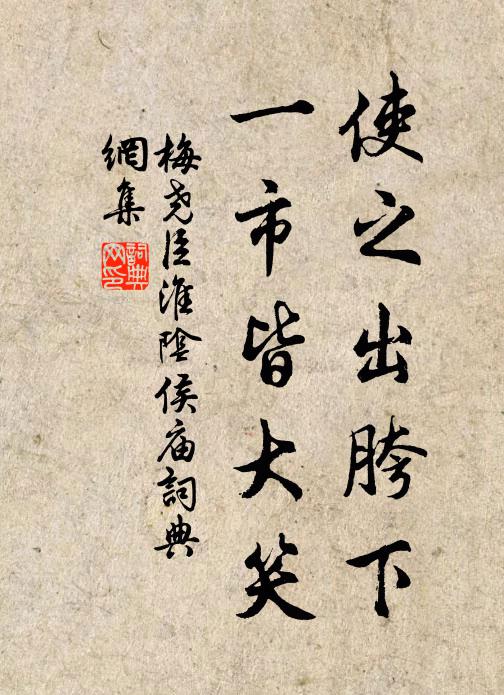 使之出胯下
一市皆大笑
梅尧臣淮陰侯庙詞典
網集
詞典网印